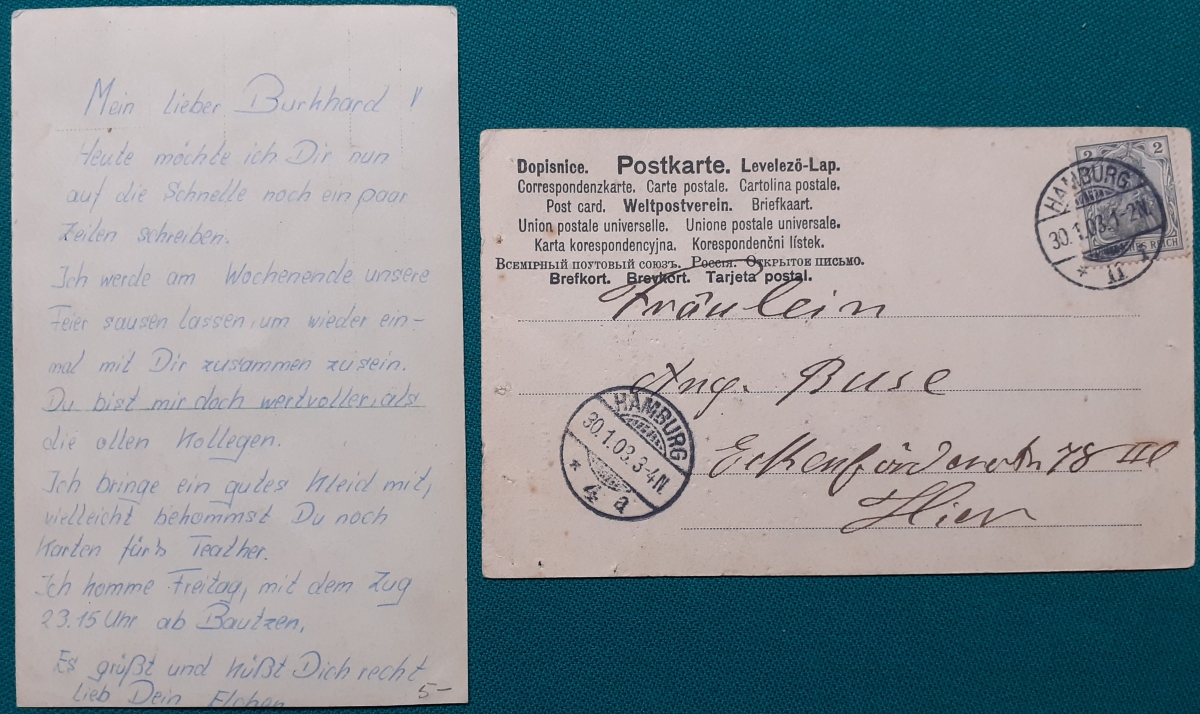 Mein lieber Burkhard !
Heute möchte ich Dir nun
auf die Schnelle noch ein paar
Zeilen schreiben.
Ich werde am Wochenende unsere
Feier sausen lassen, um wieder ein-
mal mit Dir zusammen zu sein.
Du bist mir doch wertvoller, als
die ollen Kollegen.
Ich bringe ein gutes Kleid mit,
vielleicht bekommst Du noch
Karten für's Teather.
Ich komme Freitag, mit dem Zug
23.15 Uhr ab Bautzen.
Es grüßt und küßt Dich recht
lieb Dein
5-
Dopisnice. Postkarte. Levelező-Lap.
Correspondenzkarte. Carte postale. Cartolina postale.
Post card. Weltpostverein. Briefkaart.
Union postale universelle. Unione postale universale.
Karta korespondencyjna. Korespondenční lístek.
Всемірный поутовый союзъ. Россія. Открытое письмо.
Brefkort. Brevkort. Tarjeta postal.
2 2
ES REICH
HAMBURG
30.1.03.1-2N.
* 11
Fräulein
Ang. Buse
78 III
Hier
HAMBURG
30.1.03.3-4N.
* 4 a